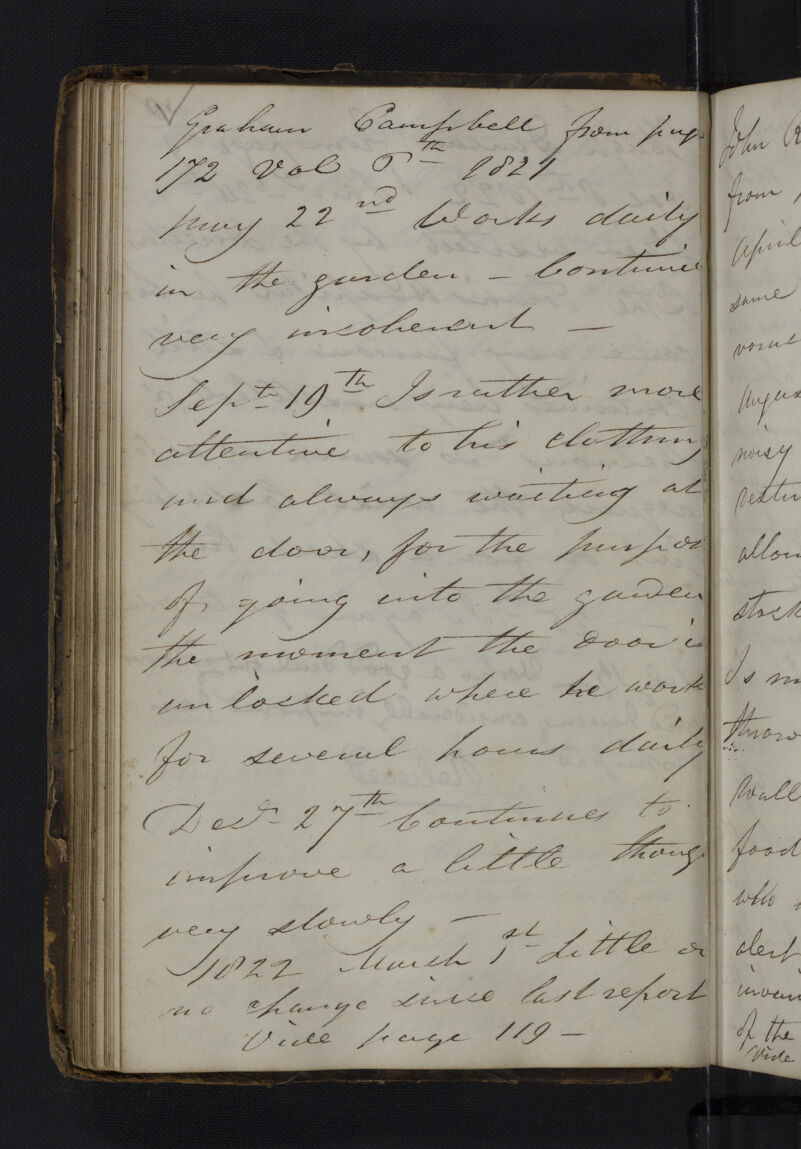 Graham Campbell from pag
172 Vol 6th 1821
May 22nd Works daily
in the garden – Continue
very incoherent –
Septr 19th Is rather more
attentive to his clothing
and always waiting at
the door, for the purpos
of going into the garden
the moment the door is
unlocked where he work
for several hours daily
Decr 27th Continues to
improve a little thoug
very slowly –
1822 March 1st Little or
no change since last report
Vide page 119 –
John
from
April
same
August
noisy
allow
stock
Is
throw
Wall
food
who
alert
of the
Vide